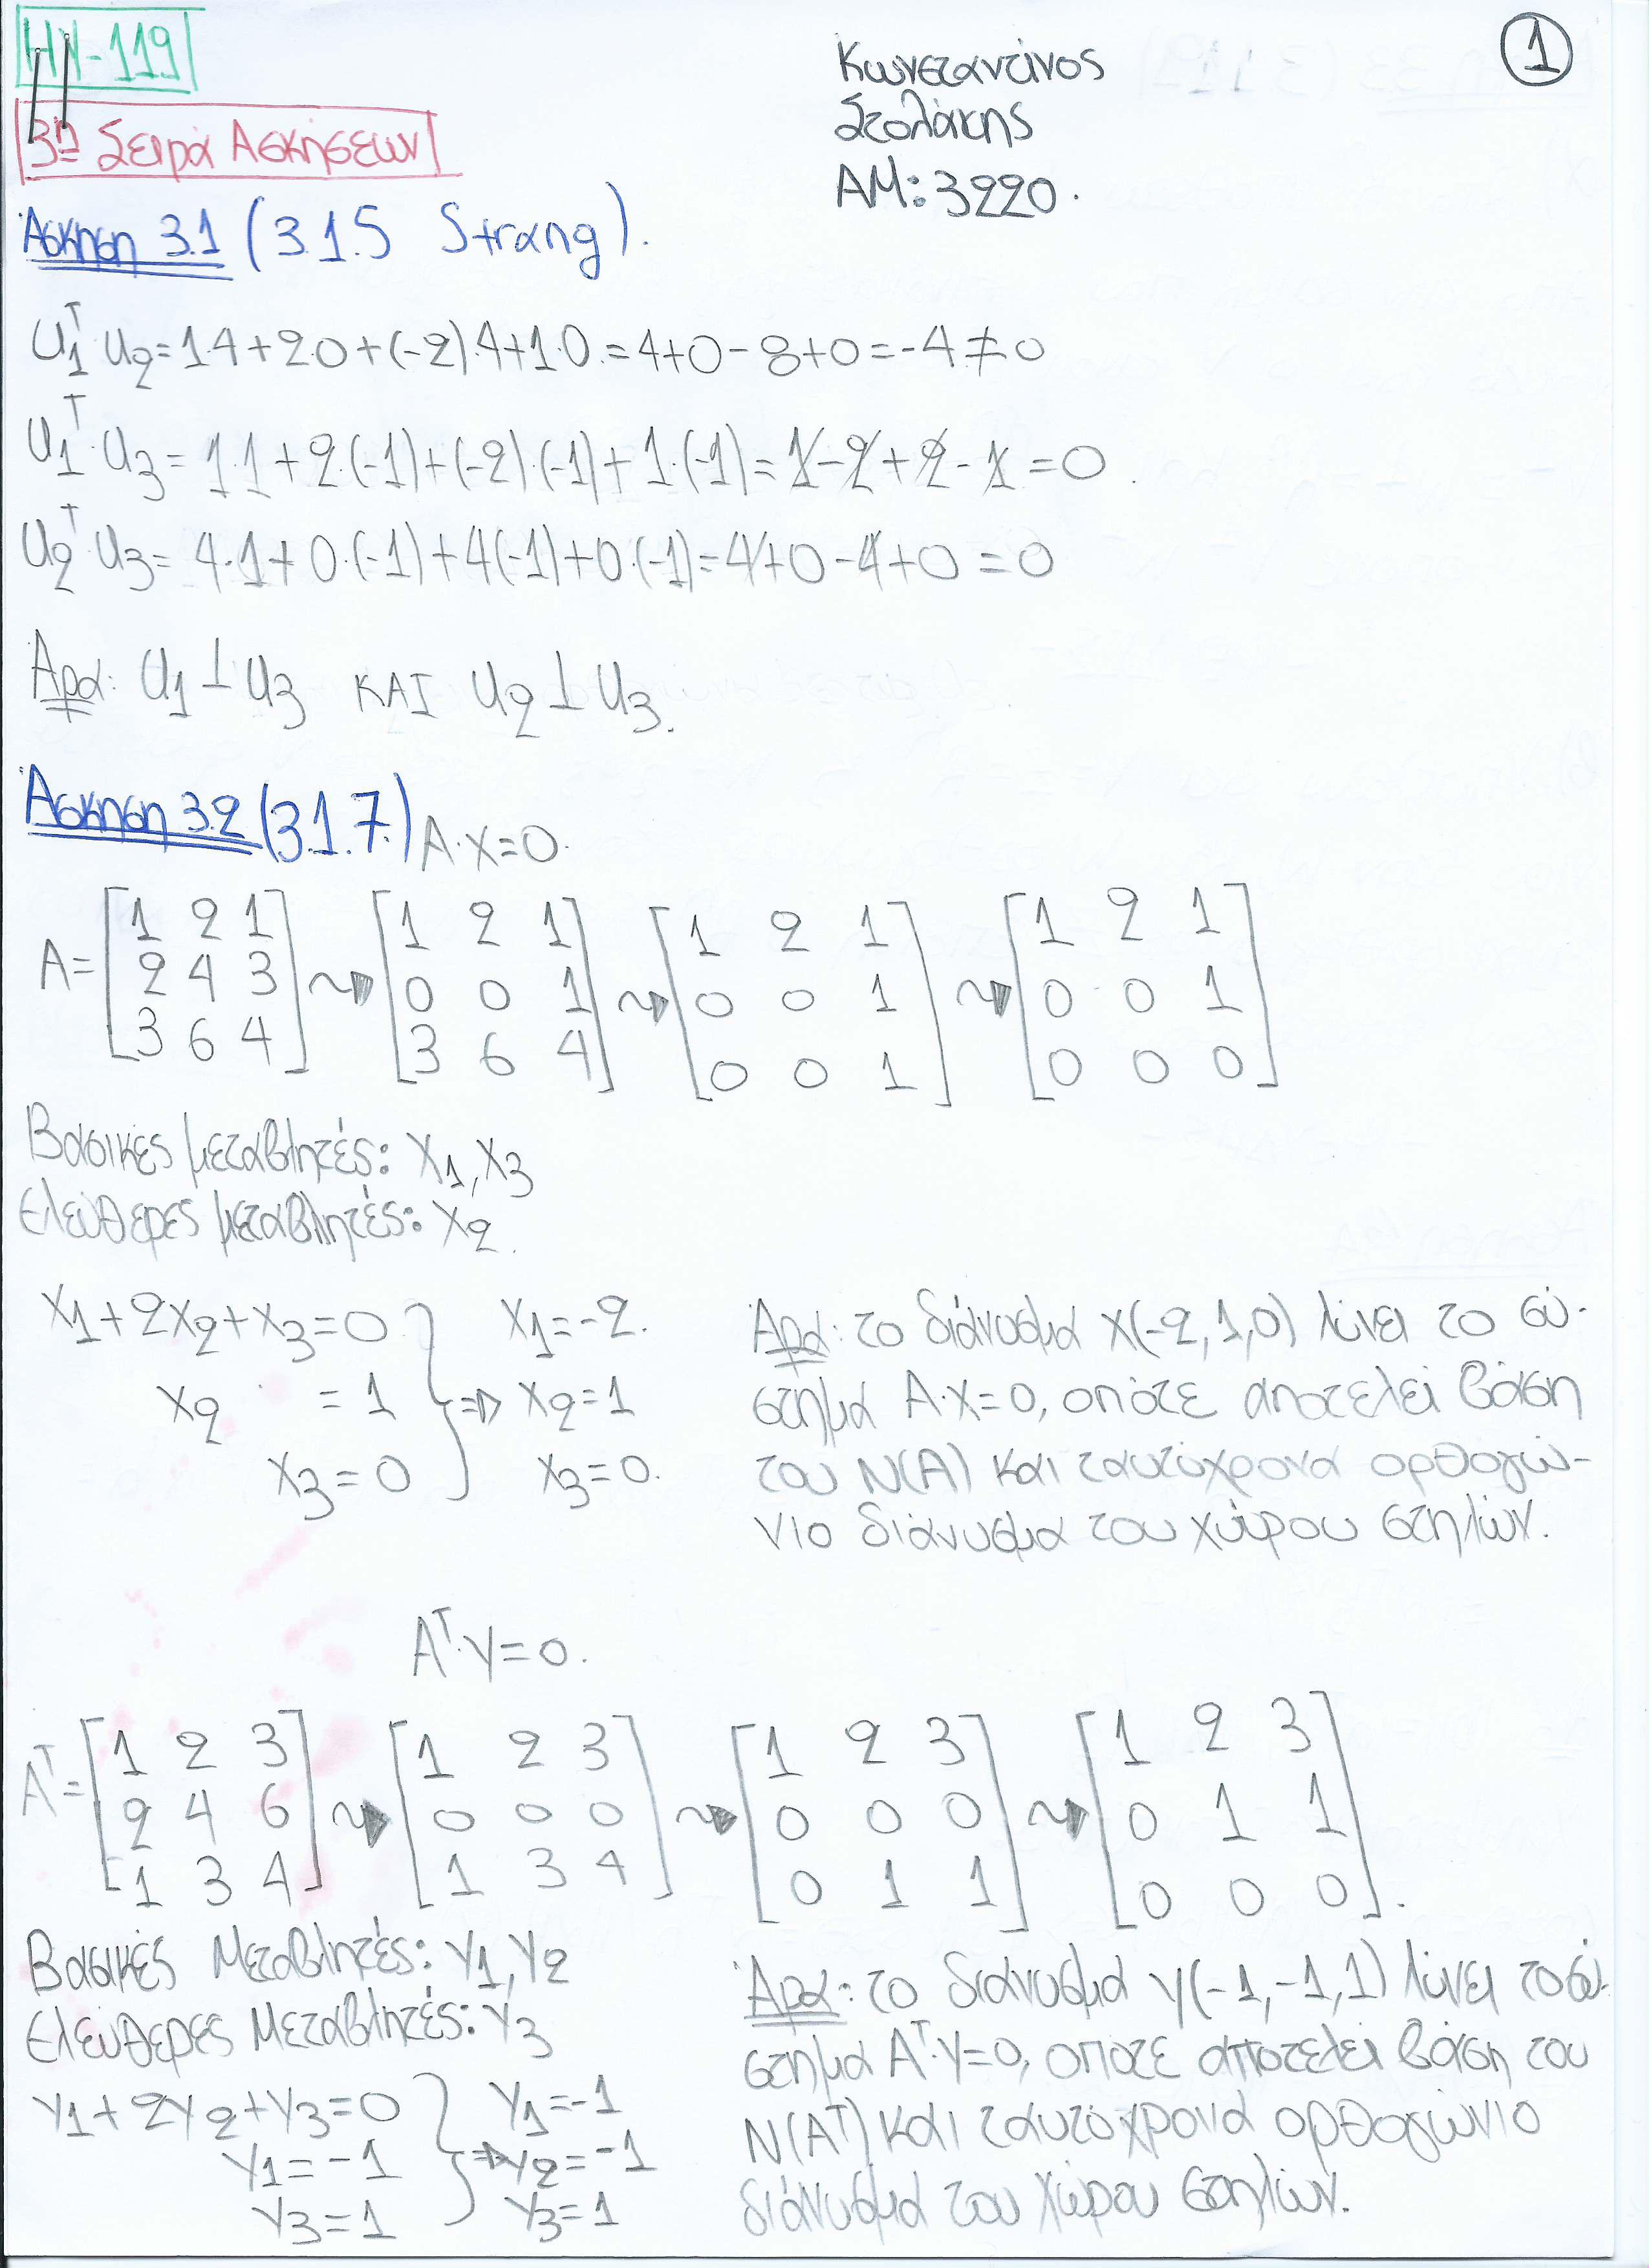 ΗΥ-119
①
Κωνσταντίνος
Στολάκης
ΑΜ: 3220.
3η Σειρά Ασκήσεων
Άσκηση 3.1 (3.1.5 Strang).
U₁ᵀ U₂ = 1·4+2·0+(-2)·4+1·0 = 4+0-8+0 = -4 ≠ 0
U₁ᵀ·U₃ = 1·1+2·(-1)+(-2)·(-1)+1·(-1) = 1-2+2-1 = 0.
U₂ᵀ·U₃ = 4·1+0·(-1)+4(-1)+0·(-1) = 4+0-4+0 = 0
Άρα: U₁ ⊥ U₃ ΚΑΙ U₂ ⊥ U₃.
Άσκηση 3.2 (3.1.7.) A·X=0.
A= [1 2 1 ; 2 4 3 ; 3 6 4] ⇝ [1 2 1 ; 0 0 1 ; 3 6 4] ⇝ [1 2 1 ; 0 0 1 ; 0 0 1] ⇝ [1 2 1 ; 0 0 1 ; 0 0 0]
Βασικές μεταβλητές: X₁, X₃
Ελεύθερες μεταβλητές: X₂.
X₁+2X₂+X₃=0
X₂ = 1
X₃=0
⇒
X₁=-2.
X₂=1
X₃=0.
Άρα: το διάνυσμα X(-2,1,0) λύνει το σύ-
στημα A·X=0, οπότε αποτελεί βάση
του N(A) και ταυτόχρονα ορθογώ-
νιο διάνυσμα του χώρου στηλών.
Aᵀ·Y=0.
Aᵀ= [1 2 3 ; 2 4 6 ; 1 3 4] ⇝ [1 2 3 ; 0 0 0 ; 1 3 4] ⇝ [1 2 3 ; 0 0 0 ; 0 1 1] ⇝ [1 2 3 ; 0 1 1 ; 0 0 0].
Βασικές Μεταβλητές: Y₁, Y₂
Ελεύθερες Μεταβλητές: Y₃
Y₁+2Y₂+Y₃=0
Y₁=-1
Y₃=1
⇒
Y₁=-1
Y₂=-1
Y₃=1
Άρα: το διάνυσμα Y(-1,-1,1) λύνει το σύ-
στημα Aᵀ·Y=0, οπότε αποτελεί βάση του
N(Aᵀ) και ταυτόχρονα ορθογώνιο
διάνυσμα του χώρου στηλών.